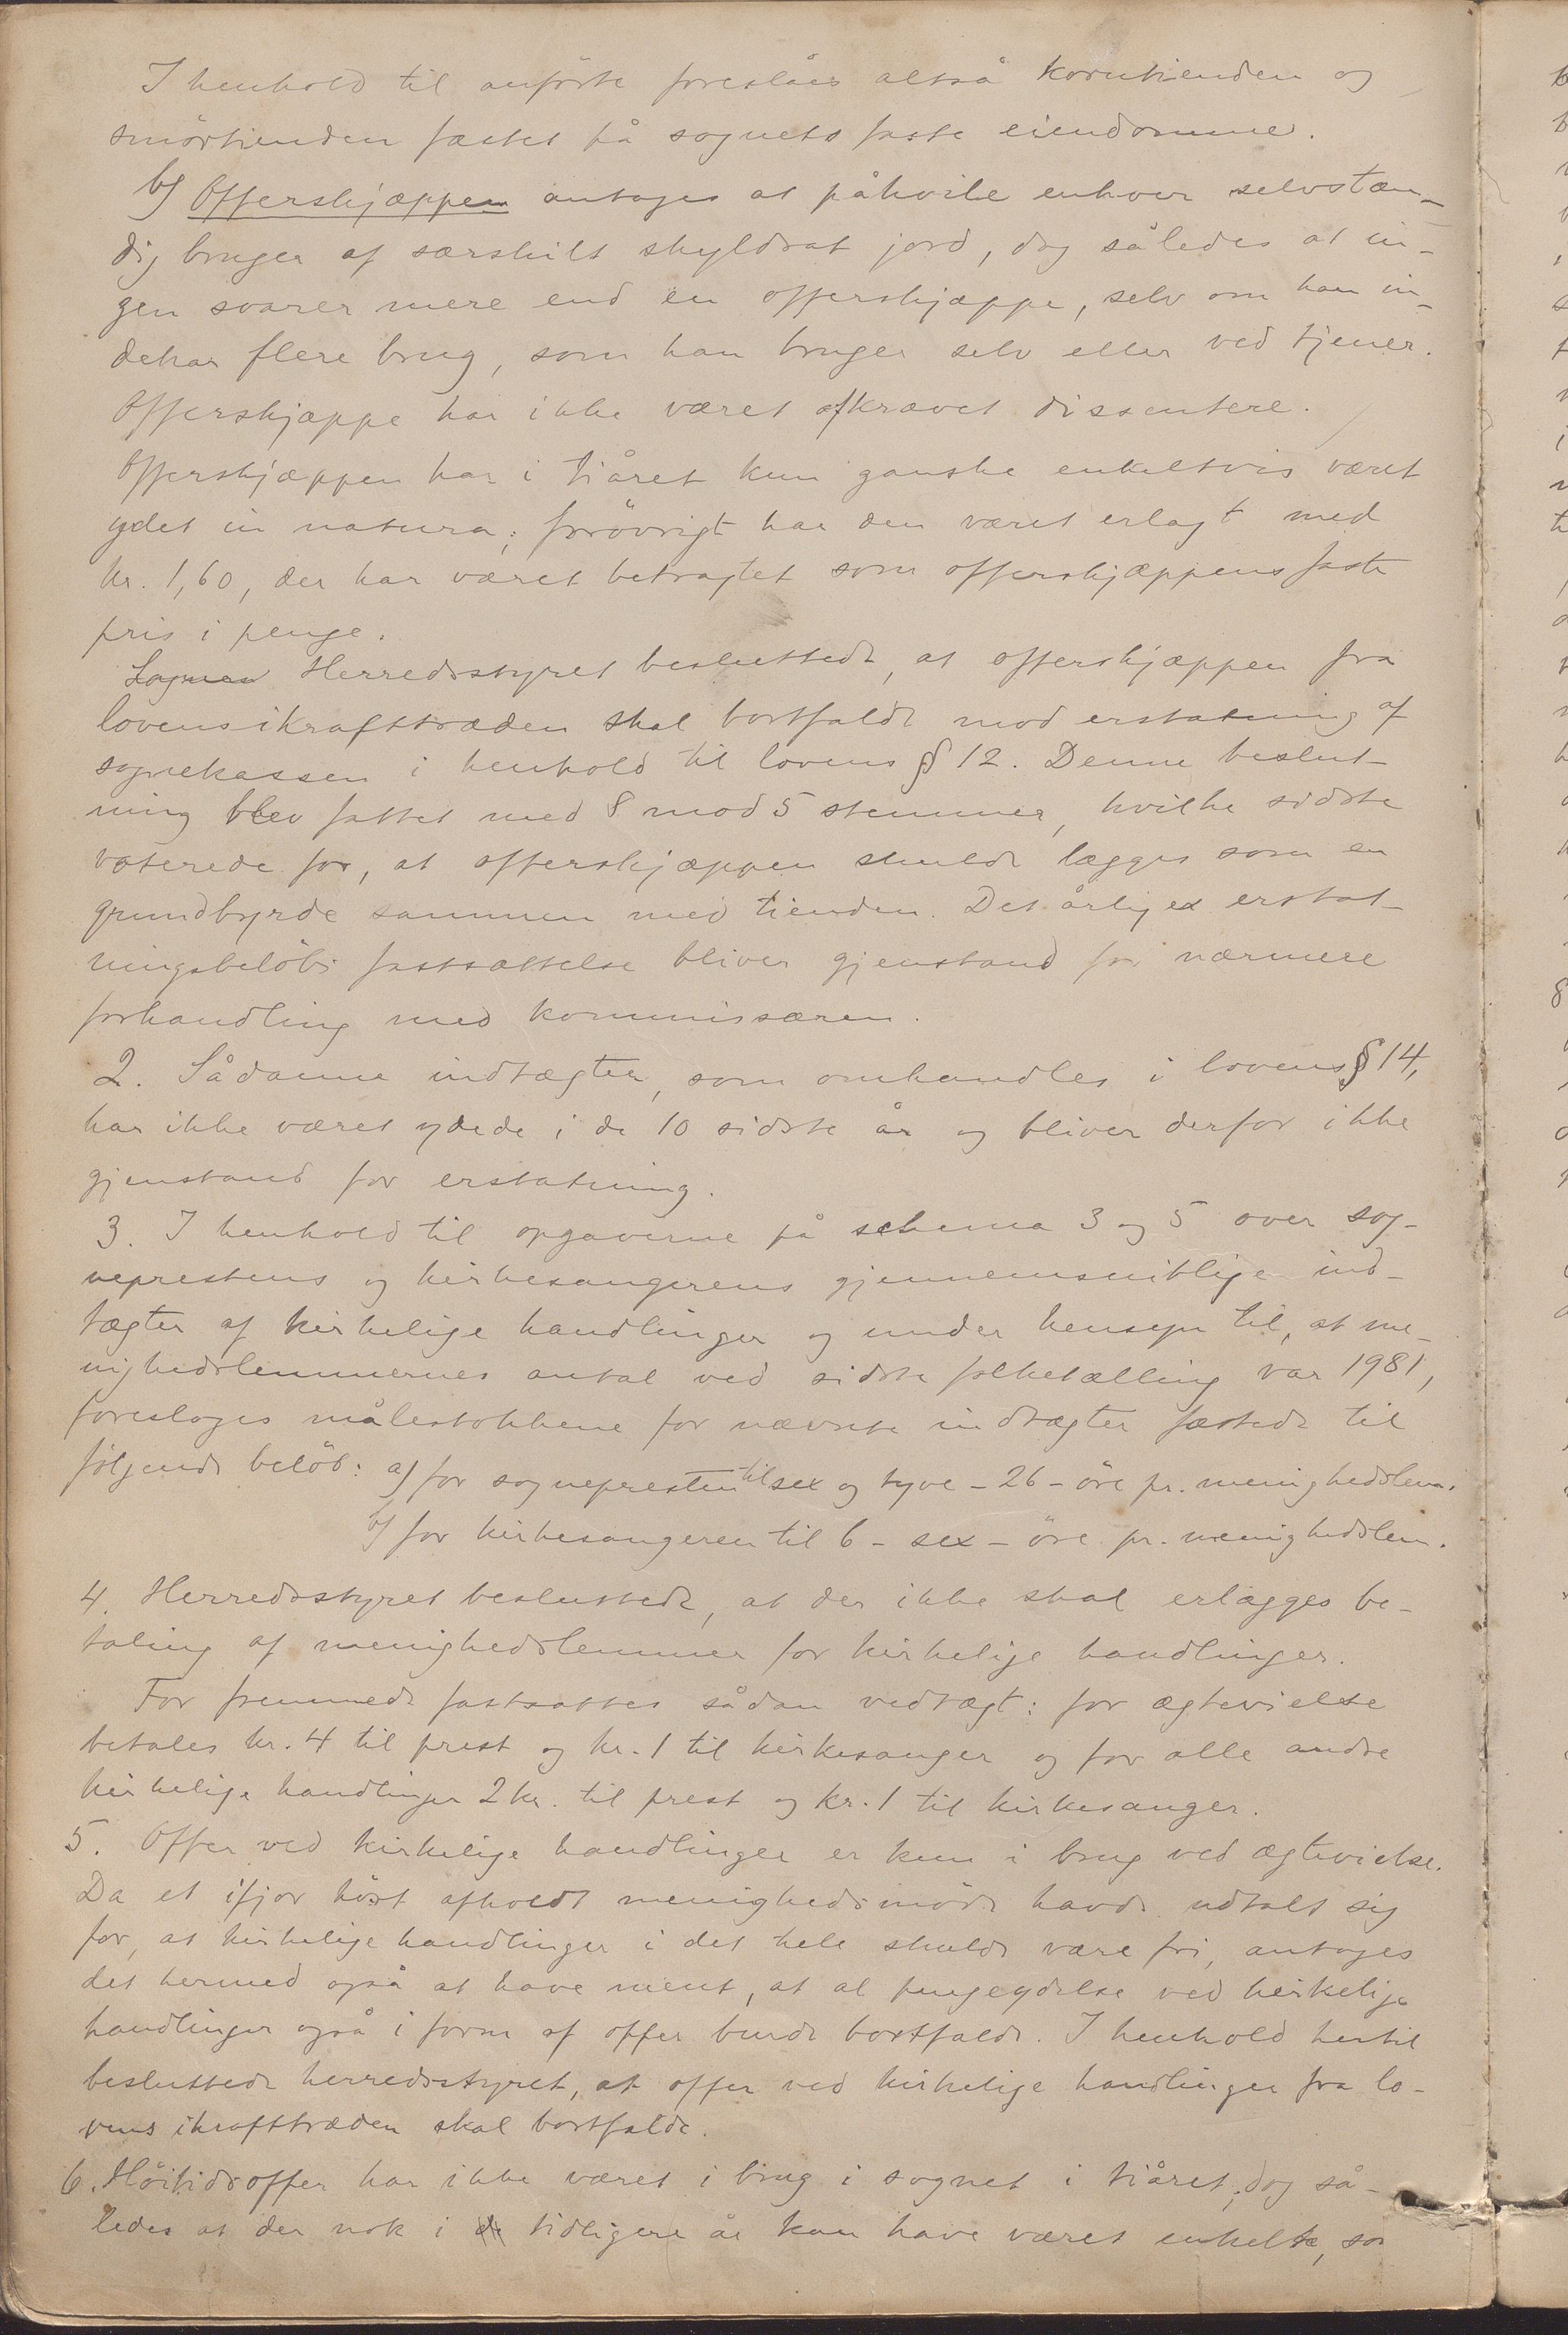 I henhold til anførte foreslåes altså korntienden og
smörtienden fæstet på sognets faste eiendomme.
b) Offerskjæppen antages at påhvile enhver selvstæn-
dig bruger af særskilt skyldsat jord, dog således at in-
gen svarer mere end en offerskjæppe, selv om han in-
dehar flere brug, som han bruger selv eller ved tjener.
Offerskjæppe har ikke været afkrævet dissentere.
Offerskjæppen har i tiåret kun ganske enkeltvis været
ydet in natura; forövrigt har den været erlagt med
kr. 1,60, der har været betragtet som offerskjæppens faste
pris i penge.
Herredsstyret besluttede, at offerskjæppen fra
lovens ikrafttræden skal bortfalde mod erstatning af
sognekassen i henhold til lovens § 12. Denne beslut-
ning blev fattet med 8 mod 5 stemmer, hvilke sidste
voterede for, at offerskjæppen skulde lægges som en
grundbyrde sammen med tienden. Det årlige erstat-
ningsbelöbs fastsættelse bliver gjenstand for nærmere
forhandling med kommissæren.
2. Sådanne indtægter, som omhandles i lovens § 14,
har ikke været ydede i de 10 sidste år og bliver derfor ikke
gjenstand for erstatning.
3. I henhold til opgaverne på schema 3 og 5 over sog-
neprestens og kirkesangerens gjennemsnitlige ind-
tægter af kirkelige handlinger og under hensyn til, at me-
nighedslemmernes antal ved sidste folketælling var 1981,
foresloges målestokkene for nævnte indtægter fæstede til
følgende belöb: a) for sognepresten til sex og tyve - 26 - öre pr. menighedslem.
b) for kirkesangeren til 6 - sex - öre pr. menighedslem.
4. Herredsstyret besluttede, at der ikke skal erlægges be-
taling af menighedslemmer for kirkelige handlinger.
For fremmede fastsattes sådan vedtægt: for ægtevielse
betales kr. 4 til prest og kr. 1 til kirkesanger og for alle andre
kirkelige handlinger 2 kr. til prest og kr. 1 til kirkesanger.
5. Offer ved kirkelige handlinger er kun i brug ved ægtevielse.
Da et ifjor höst afholdt menighedsmöde havde udtalt sig
for, at kirkelige handlinger i det hele skulde være fri, antages
det hermed også at have ment, at al pengeydelse ved kirkelige
handlinger også i form af offer burde bortfalde. I henhold hertil
besluttede herredsstyret, at offer ved kirkelige handlinger fra lo-
vens ikrafttræden skal bortfalde.
6. Höitidsoffer har ikke været i brug i sognet i tiåret, dog så-
ledes at der nok i de tidligere år kan have været enkelte, so